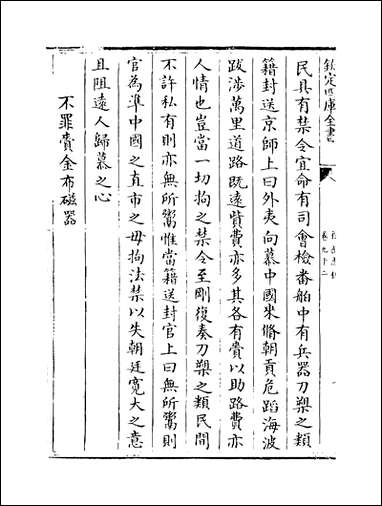 欽定四庫全書
卷九十二
民具有禁令宜命有司會檢番舶中有兵器刀槊之類
籍封送京師上曰外夷向慕中國來脩朝貢危蹈海波
跋涉萬里道路既遠貲費亦多其各有賫以助路費亦
人情也豈當一切拘之禁令至剛復奏刀槊之類民間
不許私有則亦無所鬻惟當籍送封官上曰無所鬻則
官為準中國之直市之毋拘法禁以失朝廷寛大之意
且阻遠人歸慕之心
不罪賫金布磁器